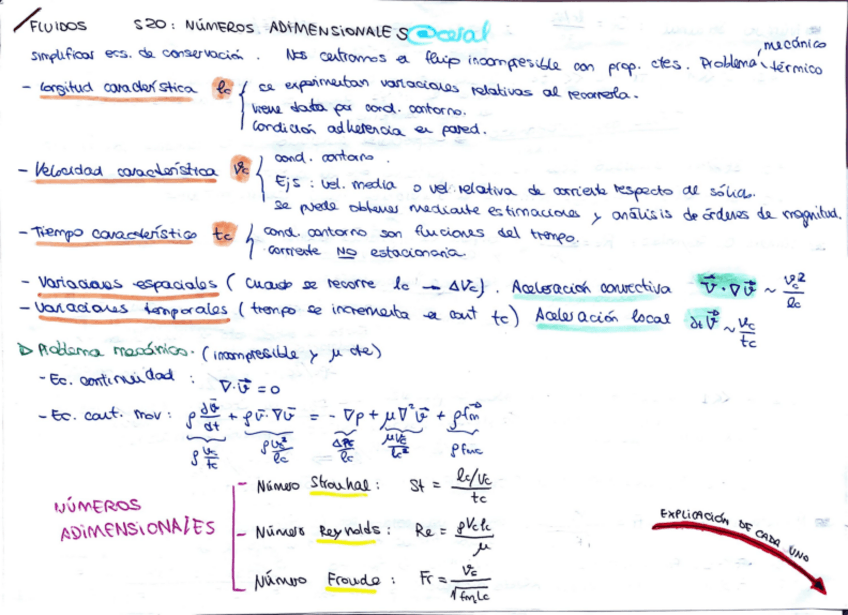 FLUIDOS S20: NÚMEROS ADIMENSIONALES @ceral
simplificar ecs. de conservación. Nos centramos en flujo incompresible con prop. ctes. Problema mecánico, térmico
- Longitud característica lc
se experimentan variaciones relativas al recorrerla.
viene dada por cond. contorno.
condición adherencia en pared.
- Velocidad característica vc
cond. contorno.
Ejs: vel. media o vel. relativa de corriente respecto al sólido.
se puede obtener mediante estimaciones y análisis de órdenes de magnitud.
- Tiempo característico tc
cond. contorno son funciones del tiempo.
corriente NO estacionaria
- Variaciones espaciales (cuando se recorre lc → ΔVc). Aceleración convectiva v⃗·∇v⃗ ~ vc²/lc
- Variaciones temporales (tiempo se incrementa en cant tc) Aceleración local ∂t v⃗ ~ vc/tc
▷ Problema mecánico. (incompresible y μ cte)
- Ec. continuidad : ∇·v⃗ = 0
- Ec. cant. mov: ρ dv⃗/dt + ρv⃗·∇v⃗ = -∇p + μ∇²v⃗ + ρf⃗m
ρ vc/tc ρvc²/lc ΔPc/lc μvc/lc² ρfmc
NÚMEROS ADIMENSIONALES
- Número Strouhal: St = (lc/vc)/tc
- Número Reynolds: Re = ρvclc/μ
- Número Froude: Fr = vc/√(fm lc)
EXPLICACIÓN DE CADA UNO